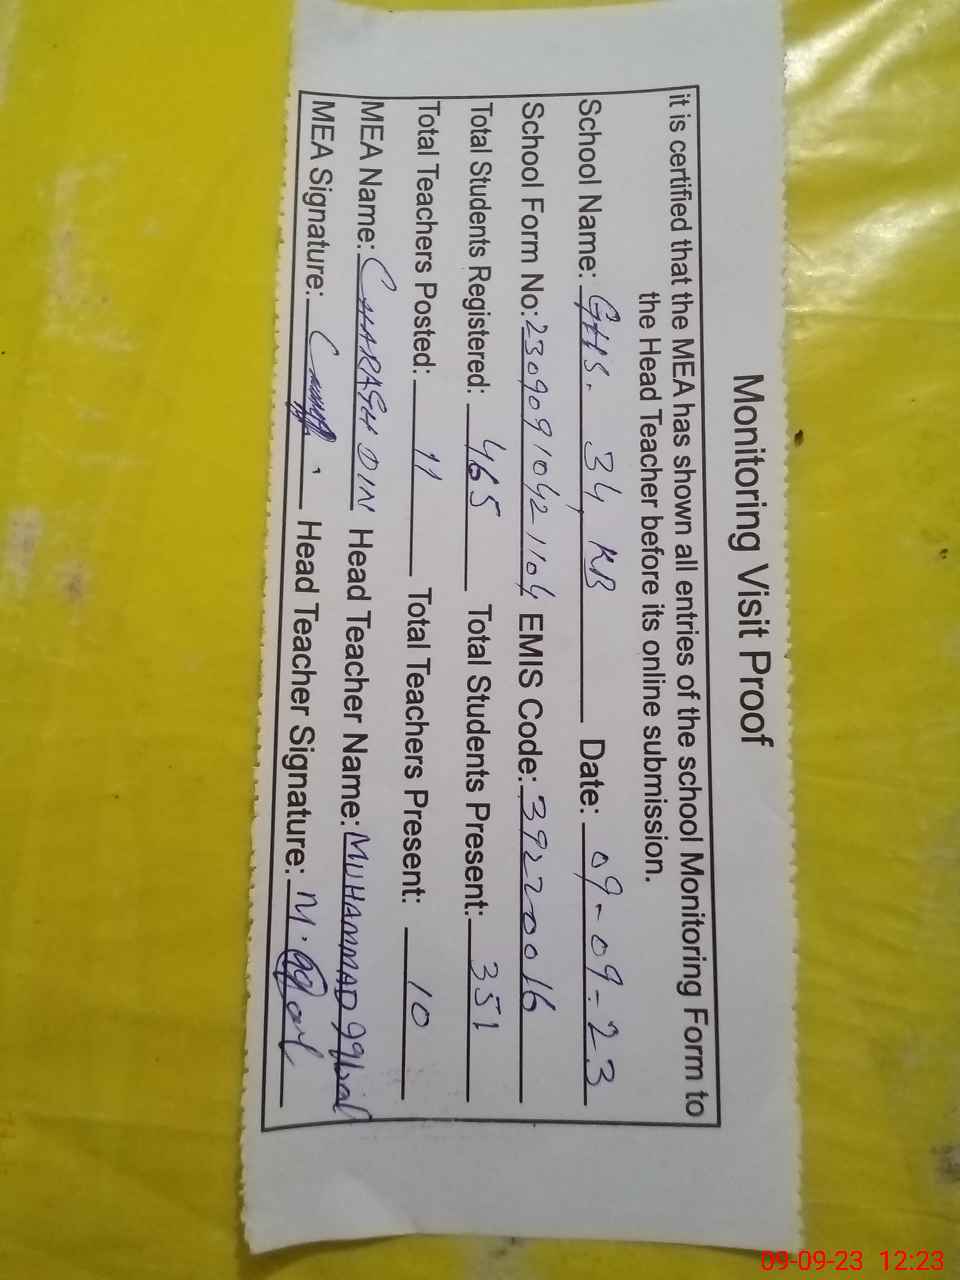 Monitoring Visit Proof
it is certified that the MEA has shown all entries of the school Monitoring Form to
the Head Teacher before its online submission.
School Name: GHS. 34, KB Date: 09-09-23
School Form No: 23090910421104 EMIS Code: 39220016
Total Students Registered: 465 Total Students Present: 351
Total Teachers Posted: 11 Total Teachers Present: 10
MEA Name: CHARAGH DIN Head Teacher Name: MUHAMMAD Iqbal
MEA Signature: Head Teacher Signature: M. Iqbal
09-09-23 12:23